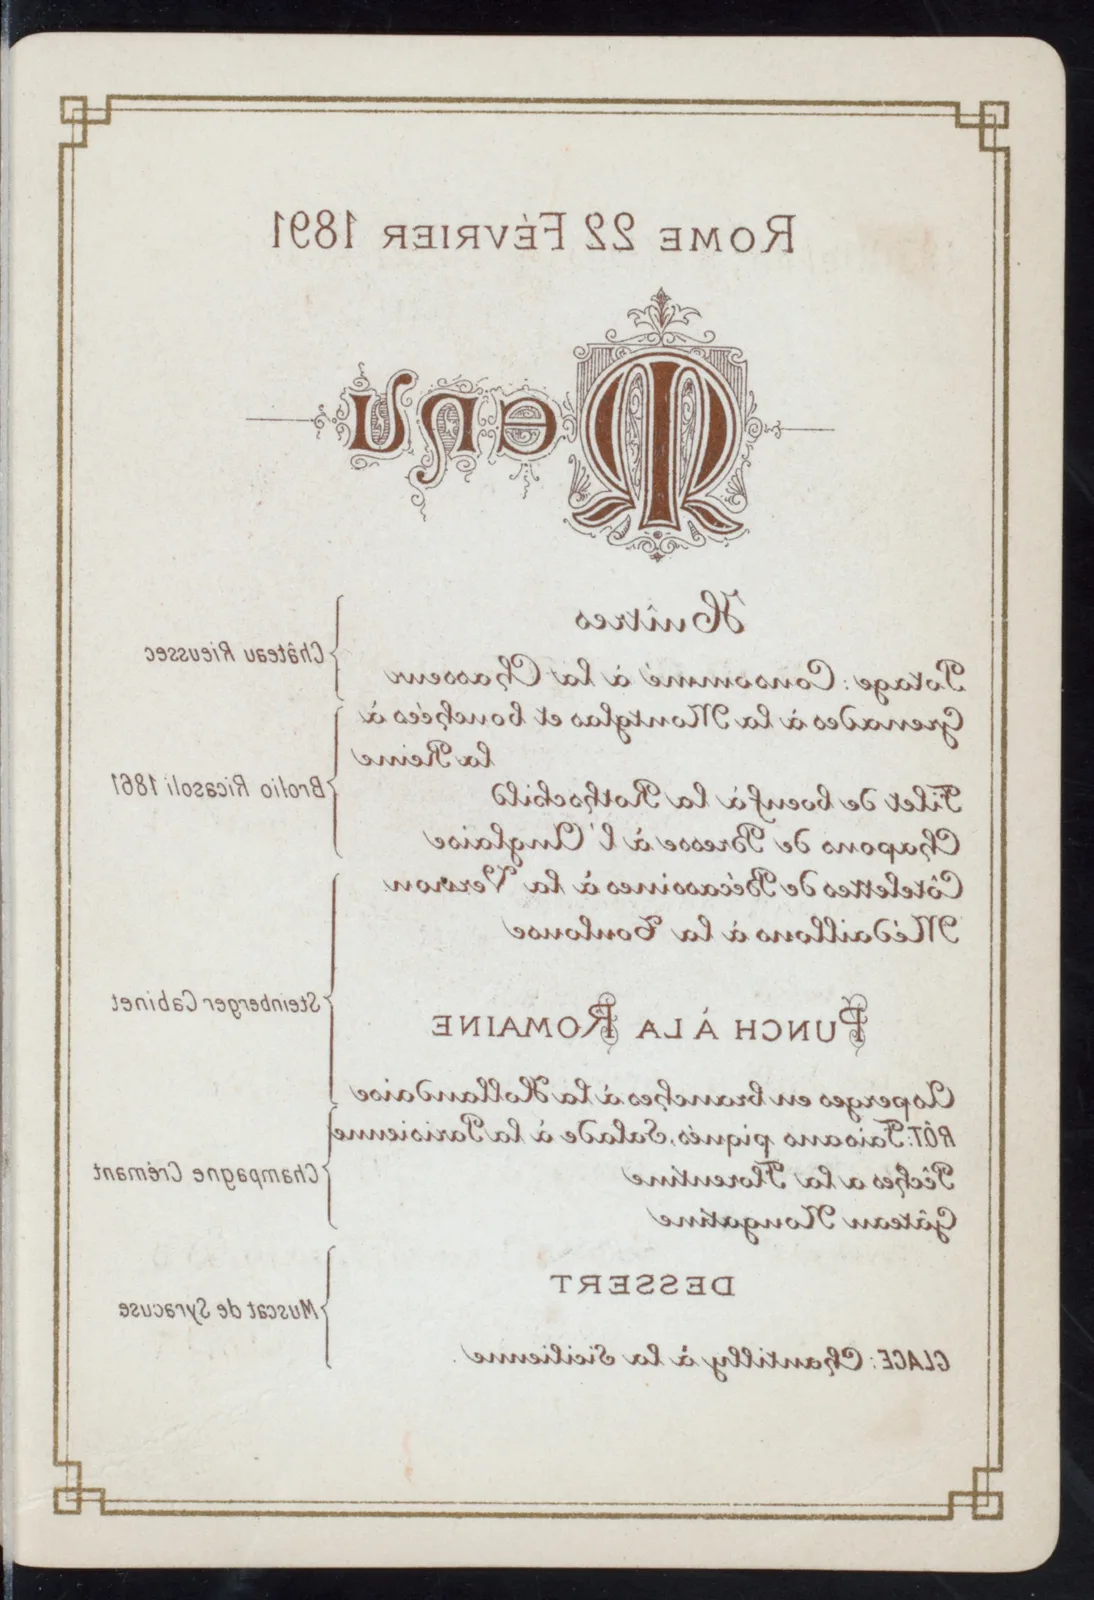 ROME 22 FÉVRIER 1891
Menu
Huîtres
Potage: Consommé à la Chasseur
Château Rieussec
Grenades à la Montglas et bouchées à
la Reine
Filet de boeuf à la Rothschild
Chapons de Bresse à l'Anglaise
Brolio Ricasoli 1861
Côtelettes de Bécassines à la Vernon
Médaillons à la Toulouse
PUNCH À LA ROMAINE
Steinberger Cabinet
Asperges en branches à la Hollandaise
RÔT: Faisans piqués, Salade à la Parisienne
Pêches a la Florentine
Gâteau Nougatine
Champagne Crémant
DESSERT
GLACE: Chantilly à la Sicilienne.
Muscat de Syracuse